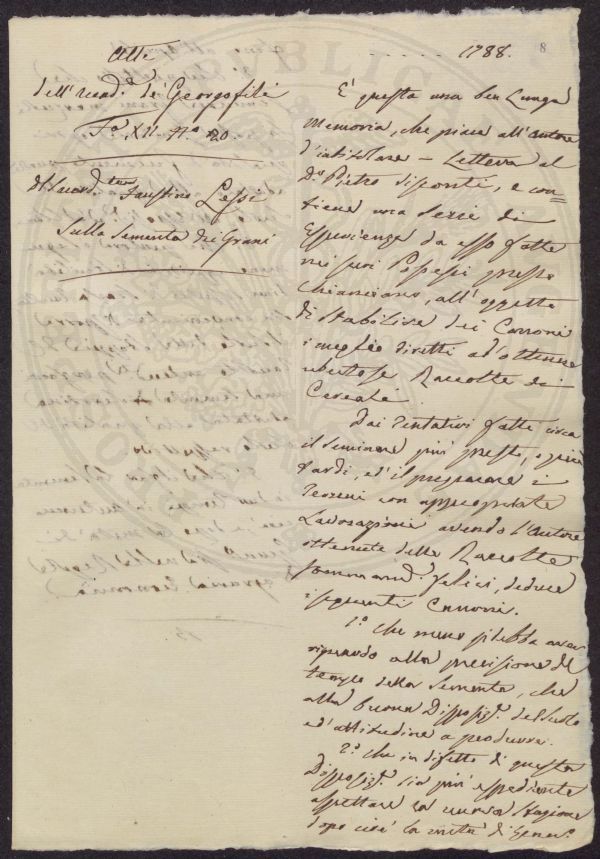 Atti
dell'Accad.ª de' Georgofili
T.º XII. N.º 20.
Accad.
Faustino Lessi
Sulla Sementa dei Grani
1788.
8
È questa una ben lunga
Memoria, che piace all'Autore
d'intitolare = Lettera al
D.r Pietro e con=
tiene una serie di
Esperienze da esso fatte
nei suoi Possessi presso
Chianciano, all'oggetto
di stabilire dei Canoni
i meglio diretti ad ottenere
ubertose Raccolte di
Cereali.
Dai tentativi fatti circa
il seminare più presto, o più
tardi, ed il preparare i
Terreni con appropriate
Lavorazioni avendo l'Autore
ottenute delle Raccolte
felici, deduce
i seguenti Canoni.
1.º che meno si debba aver
riguardo alla precisione del
tempo della Sementa, che
alla buona Disposiz.e del suolo
ed attitudine a produrre.
2.º che in difetto di questa
Disposiz.e sia più espediente
aspettare la nuova Stagione
dopo cioè la metà di Genn.º